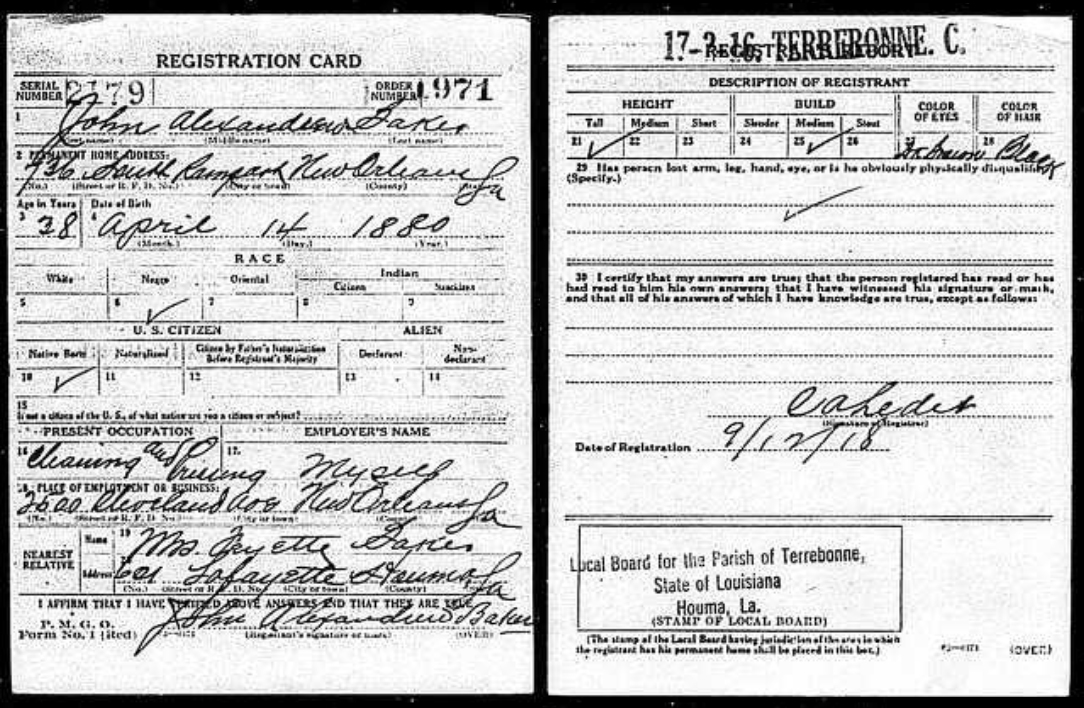 REGISTRATION CARD
SERIAL NUMBER 2179 ORDER NUMBER 1971
1 John Alexandrew Baker
(First name) (Middle name) (Last name)
2 PERMANENT HOME ADDRESS:
936 South Rampart New Orleans La
(No.) (Street or R. F. D. No.) (City or town) (County) (State)
Age in Years Date of Birth
3 38 4 April 14 1880
(Month.) (Day.) (Year.)
RACE
White Negro Oriental Indian
Citizen Noncitizen
5 6 ✓ 7 8 9
U. S. CITIZEN ALIEN
Native Born Naturalized Citizen by Father's Naturalization Before Registrant's Majority Declarant Non-declarant
10 ✓ 11 12 13 14
15
If not a citizen of the U. S., of what nation are you a citizen or subject?
PRESENT OCCUPATION EMPLOYER'S NAME
16 Cleaning and Pressing 17 Myself
18 PLACE OF EMPLOYMENT OR BUSINESS:
2600 Cleveland ave New Orleans La
(No.) (Street or R. F. D. No.) (City or town) (County)
NEAREST RELATIVE
Name 19 Mrs. Baker
Address 20 601 Lafayette Houma La
(No.) (Street or R. F. D. No.) (City or town) (County)
I AFFIRM THAT I HAVE VERIFIED ABOVE ANSWERS AND THAT THEY ARE TRUE
P. M. G. O.
Form No. 1 (Red) John Alexandrew Baker
(Registrant's signature or mark) (OVER)
17-2-16. TERREBONNE. C.
REGISTRAR'S REPORT
DESCRIPTION OF REGISTRANT
HEIGHT BUILD COLOR OF EYES COLOR OF HAIR
Tall Medium Short Slender Medium Stout
21 ✓ 22 23 24 25 ✓ 26 27 Brown 28 Black
29 Has person lost arm, leg, hand, eye, or is he obviously physically disqualified?
(Specify.)
✓
30 I certify that my answers are true; that the person registered has read or has
had read to him his own answers; that I have witnessed his signature or mark,
and that all of his answers of which I have knowledge are true, except as follows:
Ledet
(Signature of Registrar)
Date of Registration 9/12/18
Local Board for the Parish of Terrebonne,
State of Louisiana
Houma, La.
(STAMP OF LOCAL BOARD)
(The stamp of the Local Board having jurisdiction of the area in which
the registrant has his permanent home shall be placed in this box.)
(OVER)